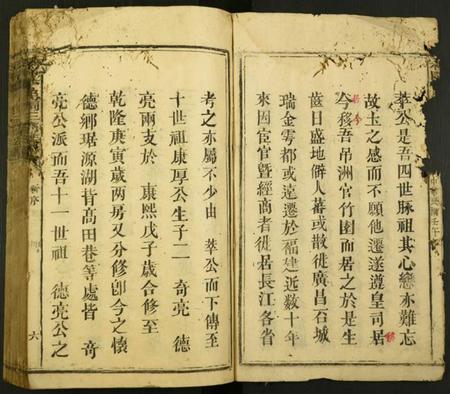 萃公是吾四世脉祖其心戀亦難忘
故土之感而不願他遷遂遵皇司居
今移吾吊洲官竹園而居之於是生
齒日盛地僻人蕃或散徙廣昌石城
瑞金雩都或遠遷於福建近数十年
來因宦官暨經商者徙居長江各省
考之亦屬不少由 萃公而下傳至
十世祖康厚公生子二 奇亮 德
亮兩支於 康熙戊子歲合修至
乾隆庚寅歲两房又分修卽今之懐
德鄉琚源湖背高田巷等處皆 奇
亮公派而吾十一世祖 德亮公之
新序
六